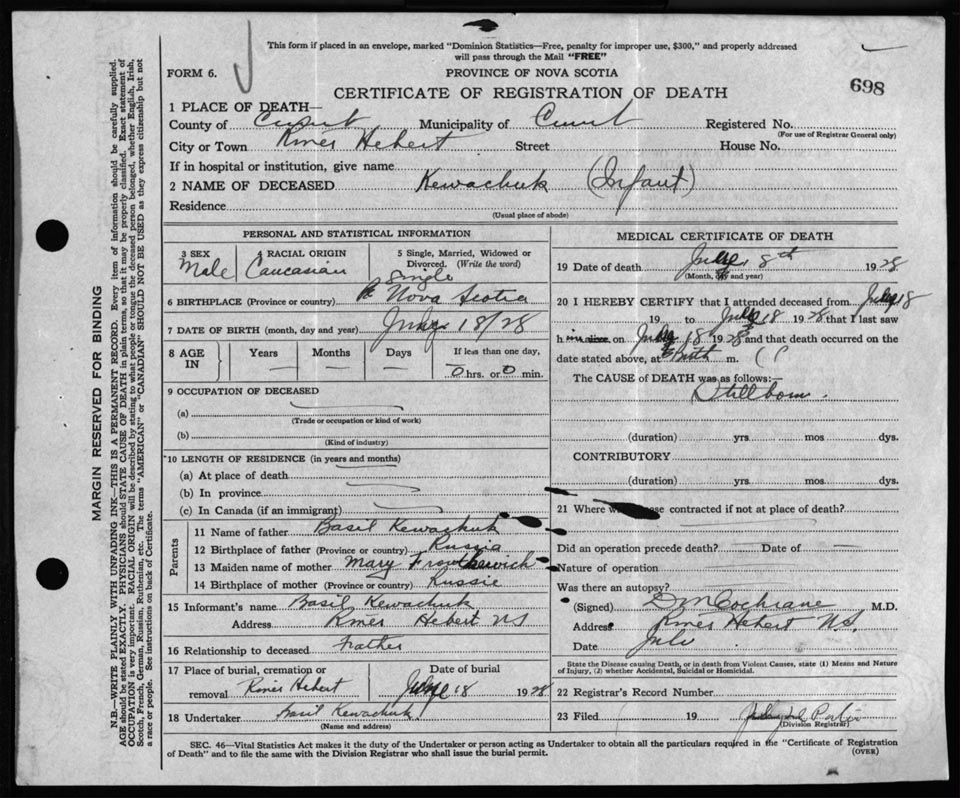 This form if placed in an envelope, marked "Dominion Statistics—Free, penalty for improper use, $300," and properly addressed
will pass through the Mail "FREE"
FORM 6.
PROVINCE OF NOVA SCOTIA
698
CERTIFICATE OF REGISTRATION OF DEATH
1 PLACE OF DEATH—
County of Municipality of Registered No.
(For use of Registrar General only)
City or Town River Hebert Street House No.
If in hospital or institution, give name
2 NAME OF DECEASED Kewachuk (Infant)
Residence
(Usual place of abode)
PERSONAL AND STATISTICAL INFORMATION
3 SEX Male
4 RACIAL ORIGIN Caucasian
5 Single, Married, Widowed or
Divorced. (Write the word)
Single
6 BIRTHPLACE (Province or country) Nova Scotia
7 DATE OF BIRTH (month, day and year) July 18/28
8 AGE IN Years — Months — Days — If less than one day,
0 hrs. or 0 min.
9 OCCUPATION OF DECEASED
(a)
(Trade or occupation or kind of work)
(b)
(Kind of industry)
10 LENGTH OF RESIDENCE (in years and months)
(a) At place of death
(b) In province
(c) In Canada (if an immigrant)
Parents
11 Name of father Basil Kewachuk
12 Birthplace of father (Province or country) Russia
13 Maiden name of mother Mary
14 Birthplace of mother (Province or country) Russie
15 Informant's name Basil Kewachuk
Address River Hebert NS
16 Relationship to deceased Father
17 Place of burial, cremation or Date of burial
removal River Hebert July 18 1928
18 Undertaker Basil Kewachuk
(Name and address)
MEDICAL CERTIFICATE OF DEATH
19 Date of death July 18th 1928
(Month, day and year)
20 I HEREBY CERTIFY that I attended deceased from July 18
19 to July 18 1928 that I last saw
h im alive on July 18th 1928 and that death occurred on the
date stated above, at Birth m.
The CAUSE of DEATH was as follows:—
Stillborn.
(duration) yrs. mos dys.
CONTRIBUTORY
(duration) yrs. mos. dys.
21 Where contracted if not at place of death?
Did an operation precede death? Date of
Nature of operation
Was there an autopsy?
(Signed) Cochrane M.D.
Address River Hebert N.S.
Date July
State the Disease causing Death, or in death from Violent Causes, state (1) Means and Nature
of Injury, (2) whether Accidental, Suicidal or Homicidal.
22 Registrar's Record Number
23 Filed 19
(Division Registrar)
SEC. 46—Vital Statistics Act makes it the duty of the Undertaker or person acting as Undertaker to obtain all the particulars required in the "Certificate of Registration
of Death" and to file the same with the Division Registrar who shall issue the burial permit. (OVER)
MARGIN RESERVED FOR BINDING
N.B.—WRITE PLAINLY WITH UNFADING INK—THIS IS A PERMANENT RECORD. Every item of information should be carefully supplied.
AGE should be stated EXACTLY. PHYSICIANS should STATE CAUSE OF DEATH in plain terms, so that it may be properly classified. Exact statement of
OCCUPATION is very important. RACIAL ORIGIN will be described by stating to what people or tongue the deceased person belonged, whether English, Irish,
Scotch, French, German, Russian, Ruthenian, etc. The terms "AMERICAN" or "CANADIAN" SHOULD NOT BE USED as they express citizenship but not
a race or people. See instructions on back of Certificate.